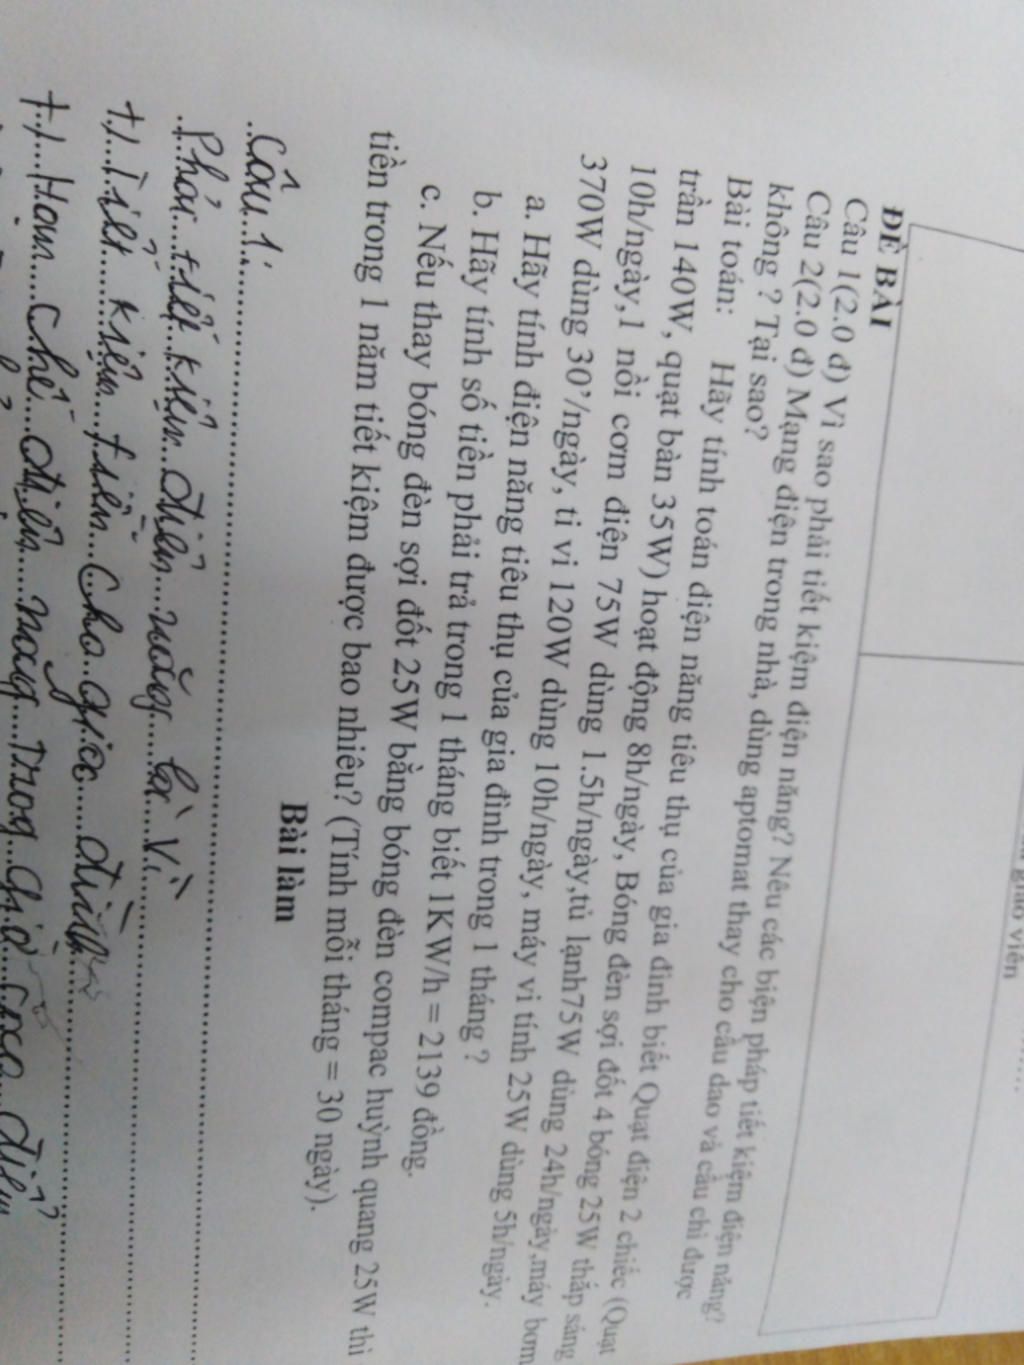 giáo viên
ĐỀ BÀI
Câu 1(2.0 đ) Vì sao phải tiết kiệm điện năng? Nêu các biện pháp tiết kiệm điện năng?
Câu 2(2.0 đ) Mạng điện trong nhà, dùng aptomat thay cho cầu dao và cầu chì được
không ? Tại sao?
Bài toán: Hãy tính toán điện năng tiêu thụ của gia đình biết Quạt điện 2 chiếc (Quạt
trần 140W, quạt bàn 35W) hoạt động 8h/ngày, Bóng đèn sợi đốt 4 bóng 25W thắp sáng
10h/ngày,1 nồi cơm điện 75W dùng 1.5h/ngày,tủ lạnh75W dùng 24h/ngày,máy bơm
370W dùng 30’/ngày, ti vi 120W dùng 10h/ngày, máy vi tính 25W dùng 5h/ngày.
a. Hãy tính điện năng tiêu thụ của gia đình trong 1 tháng ?
b. Hãy tính số tiền phải trả trong 1 tháng biết 1KW/h = 2139 đồng.
c. Nếu thay bóng đèn sợi đốt 25W bằng bóng đèn compac huỳnh quang 25W thì
tiền trong 1 năm tiết kiệm được bao nhiêu? (Tính mỗi tháng = 30 ngày).
Bài làm
Câu 1:
Phải tiết kiệm điện năng là vì
+) Tiết kiệm tiền cho gia đình
+) Hạn chế điện năng trong giờ cao điểm